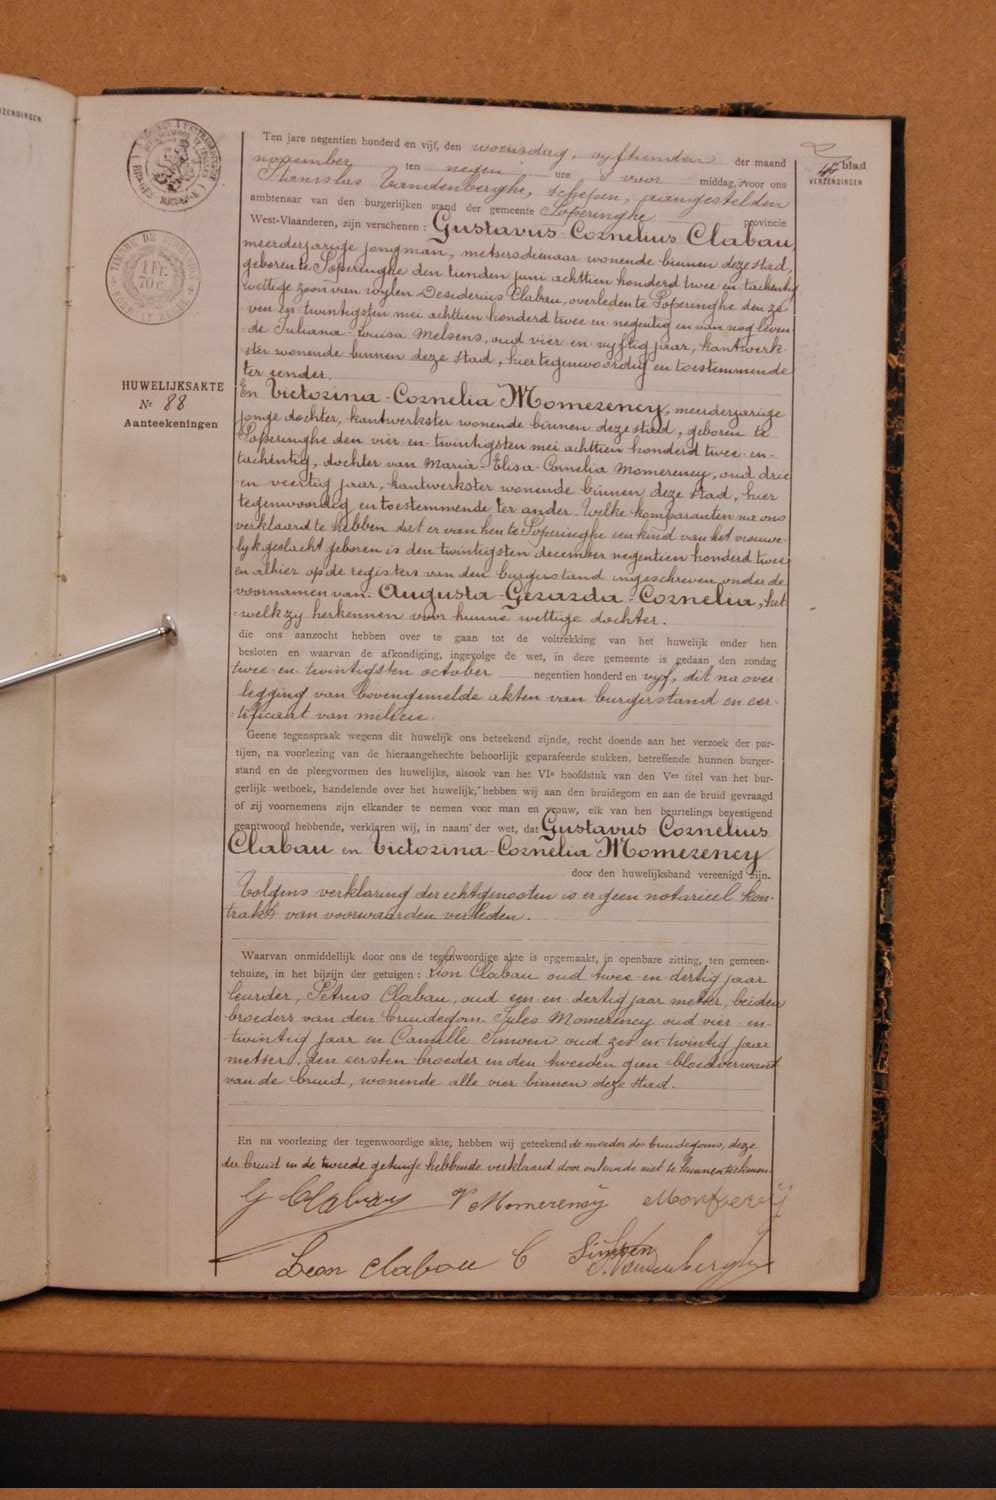 ZENDINGEN
Ten jare negentien honderd en vijf, den woensdag, vyftienden der maand
november ten negen ure voor middag, voor ons
Stanislas Vandenberghe, schepen, aangestelden
ambtenaar van den burgerlijken stand der gemeente Poperinghe provincie
West-Vlaanderen, zijn verschenen : Gustavus-Cornelius Clabau,
meerderjarige jongman, metsersdienaar wonende binnen deze stad,
geboren te Poperinghe den tienden juni achttien honderd twee en tachentig
wettige zoon van wylen Desiderius Clabau, overleden te Poperinghe den ze-
ven en twintigsten mei achttien honderd twee en negentig en van nog leven-
de Juliana-Louisa Melsens, oud vier en vyftig jaar, kantwerk-
ster wonende binnen deze stad, hier tegenwoordig en toestemmende
ter eender.
En Victorina-Cornelia Momerency, meerderjarige
jonge dochter, kantwerkster wonende binnen deze stad, geboren te
Poperinghe den vier en twintigsten mei achttien honderd twee en
tachentig, dochter van Maria-Elisa-Cornelia Momerency, oud drie
en veertig jaar, kantwerkster wonende binnen deze stad, hier
tegenwoordig en toestemmende ter ander. Welke komparanten na ons
verklaard te hebben dat er van hen te Poperinghe een kind van het vrouwe-
lyk geslacht geboren is den twintigsten december negentien honderd twee
en alhier op de registers van den burgerstand ingeschreven onder de
voornamen van: Augusta-Gerarda-Cornelia, het-
welk zy herkennen voor hunne wettige dochter.
die ons aanzocht hebben over te gaan tot de voltrekking van het huwelijk onder hen
besloten en waarvan de afkondiging, ingevolge de wet, in deze gemeente is gedaan den zondag
twee en twintigsten october negentien honderd en vyf, dit na over-
legging van bovengemelde akten van burgerstand en cer-
tificaat van milicie.
Geene tegenspraak wegens dit huwelijk ons beteekend zijnde, recht doende aan het verzoek der par-
tijen, na voorlezing van de hieraangehechte behoorlijk geparafeerde stukken, betreffende hunnen burger-
stand en de pleegvormen des huwelijks, alsook van het VIe hoofdstuk van den Ven titel van het bur-
gerlijk wetboek, handelende over het huwelijk, hebben wij aan den bruidegom en aan de bruid gevraagd
of zij voornemens zijn elkander te nemen voor man en vrouw, elk van hen beurtelings bevestigend
geantwoord hebbende, verklaren wij, in naam der wet, dat Gustavus Cornelius
Clabau en Victorina-Cornelia Momerency
door den huwelijksband vereenigd zijn.
Volgens verklaring der echtgenooten is er geen notarieel kon-
trakt van voorwaarden verleden.
Waarvan onmiddellijk door ons de tegenwoordige akte is opgemaakt, in openbare zitting, ten gemeen-
tehuize, in het bijzijn der getuigen : Leon Clabau oud twee en dertig jaar
leurder, Petrus Clabau, oud een en dertig jaar metser, beiden
broeders van den bruidegom. Jules Momerency oud vier en
twintig jaar en Camille Simoen oud zes en twintig jaar
metser. den eersten broeder en den tweeden geen bloedverwant
van de bruid, wonende alle vier binnen deze stad.
En na voorlezing der tegenwoordige akte, hebben wij geteekend de moeder des bruidegoms, deze
der bruid en de tweede getuige hebbende verklaard door onkunde niet te kunnen teekenen.
G Clabau V Momerencÿ Momerencÿ
Leon Clabau C Simoen
S. Vandenberghe
HUWELIJKSAKTE
Nr 88
Aanteekeningen
TIMBRE DE DIMENSION
1 Fr.
70 c.
blad
VERZENDINGEN